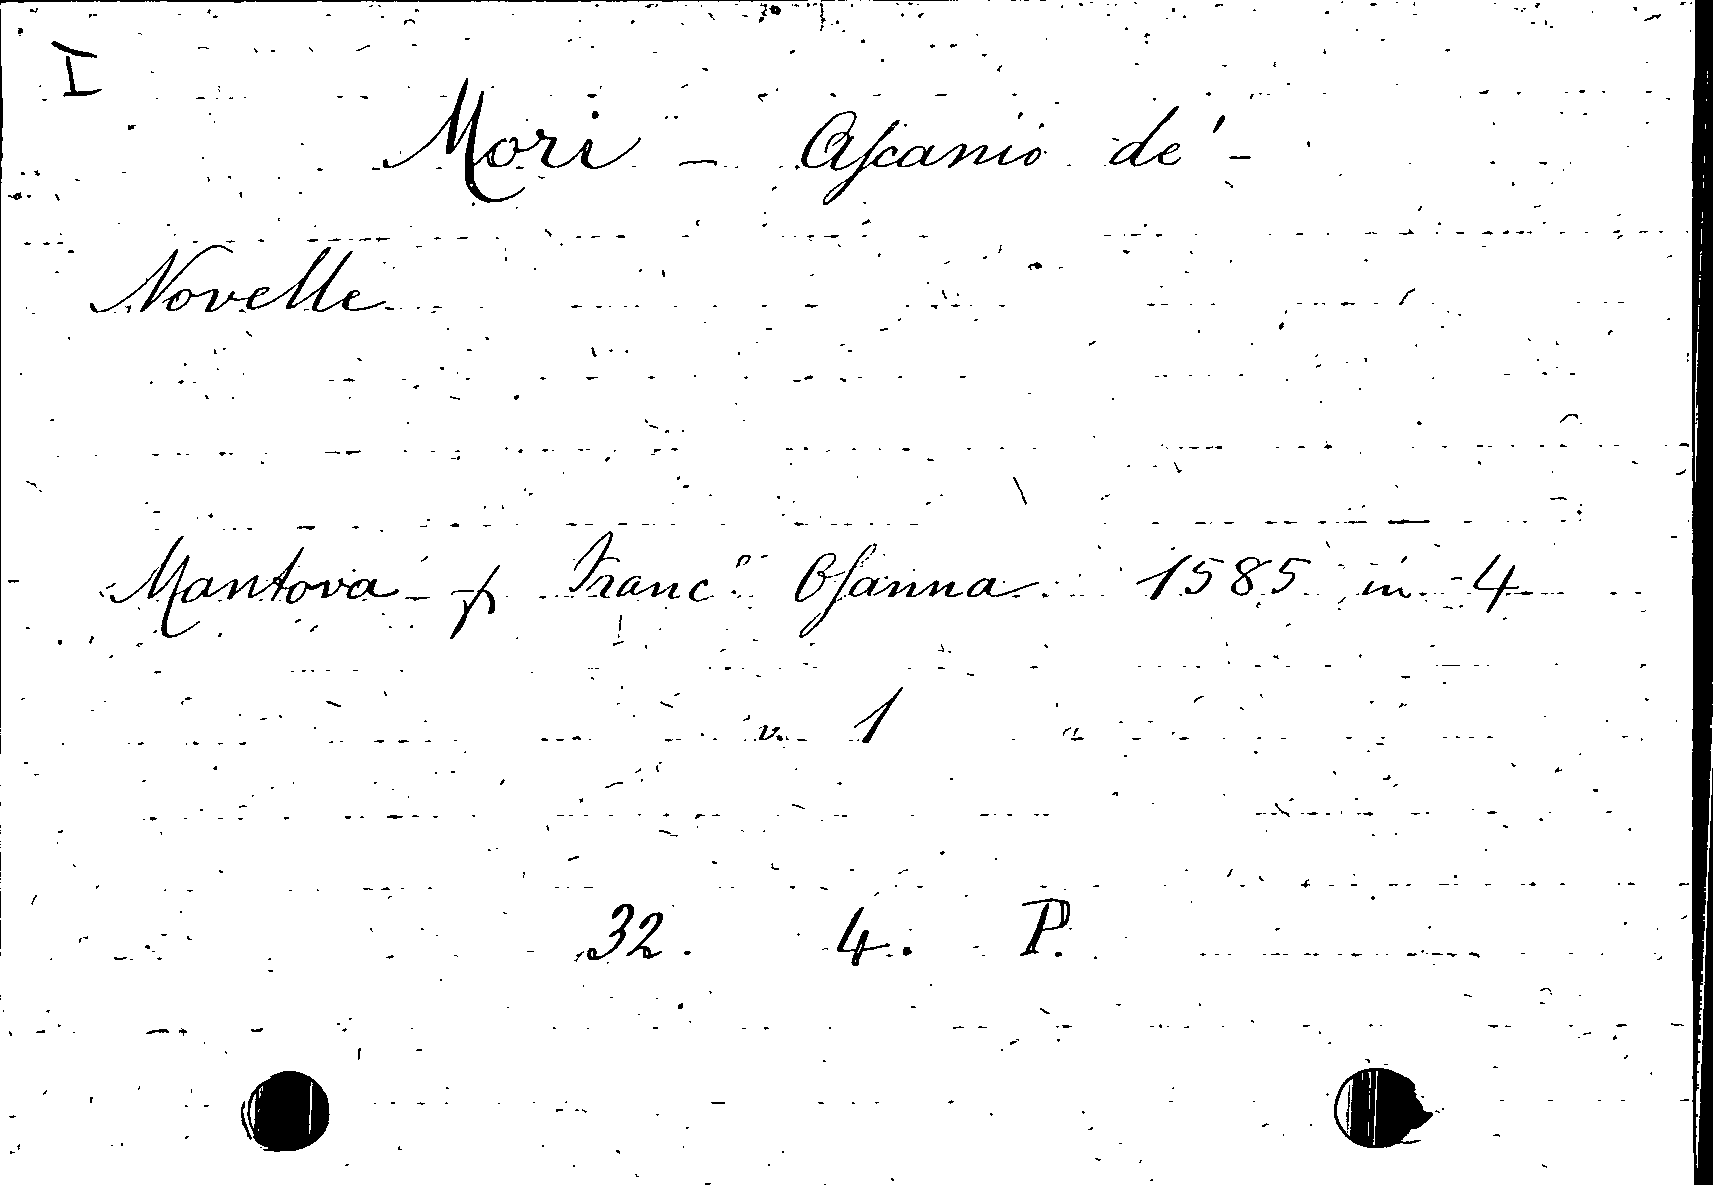 I
Mori - Ascanio de' -
Novelle
Mantova - p Franc.º Osanna 1585 in 4
v. 1
32. 4. P.